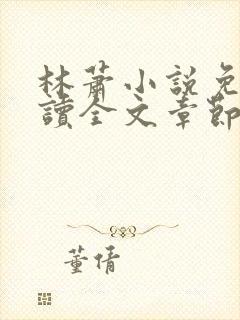 林蕭小說免
讀全文章節
董倩